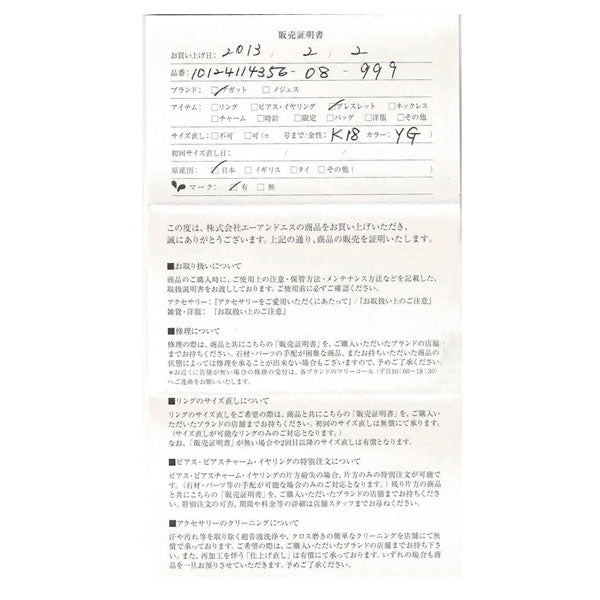 販売証明書
お買い上げ日: 2013 / 2 / 2
品番: 10124114356-08-999
ブランド: □アガット □ノジェス
アイテム: □リング □ピアス・イヤリング □ブレスレット □ネックレス
□チャーム □時計 □限定 □バッグ □洋服 □その他
サイズ直し: □不可 □可(± 号まで/金性: K18 カラー: YG )
初回サイズ直し日: / /
原産国: □日本 □イギリス □タイ □その他( )
マーク: □有 □無
この度は、株式会社エーアンドエスの商品をお買い上げいただき、
誠にありがとうございます。上記の通り、商品の販売を証明いたします。
■お取り扱いについて
商品のご購入時に、ご使用上の注意・保管方法・メンテナンス方法などを記載した、
取扱説明書をお渡ししております。ご使用前に必ずご確認ください。
アクセサリー:「アクセサリーをご愛用いただくにあたって」/「お取扱い上のご注意」
雑貨・洋服: 「お取扱い上のご注意」
■修理について
修理の際は、商品と共にこちらの「販売証明書」を、ご購入いただいたブランドの店舗
までお持ちください。石材・パーツの手配が困難な商品、またお持ちいただいた商品の
状態によっては修理を承ることが出来ない場合もございますので、予めご了承ください。
*お近くに店舗が無い場合の修理の受付は、各ブランドのフリーコール(平日10:00～18:30)
へご連絡をお願いいたします。
■リングのサイズ直しについて
リングのサイズ直しをご希望の際は、商品と共にこちらの「販売証明書」を、ご購入い
ただいたブランドの店舗までお持ちください。初回のサイズ直しは無償にて承ります。
(サイズ直しが可能なリングのみのご対応となります。)
なお、「販売証明書」が無い場合や2回目以降のサイズ直しは有償となります。
■ピアス・ピアスチャーム・イヤリングの特別注文について
ピアス・ピアスチャーム・イヤリングの片方紛失の場合、片方のみの特別注文が可能で
す。(石材・パーツ等の手配が可能な場合のみのご対応となります。)残り片方の商品
と共にこちらの「販売証明書」を、ご購入いただいたブランドの店舗までお持ちください。
特別注文の可否、期間や料金等の詳細は店舗スタッフまでお尋ねください。
■アクセサリーのクリーニングについて
汗や汚れ等を取り除く超音波洗浄や、クロス磨きの簡単なクリーニングを店舗にて無
償で承っております。ご希望の際は、ご購入いただいたブランドの店舗までお持ち下さ
い。また、再加工を伴う「仕上げ直し」は有償にて承っております。いずれの場合も商
品を一旦お預りさせていただきます。予めご了承ください。